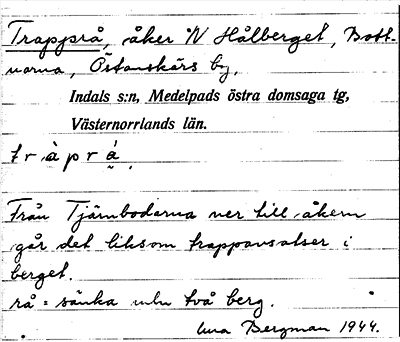 Trapprå, åker N Hålberget, Bott-
narna, Östanskärs by,
Indals s:n, Medelpads östra domsaga tg,
Västernorrlands län.
t r à p r ǻ
Från Tjärnbodarna ner till åkern
går det liksom trappavsatser i
berget.
rå = sänka mln två berg.
Bergman 1944.